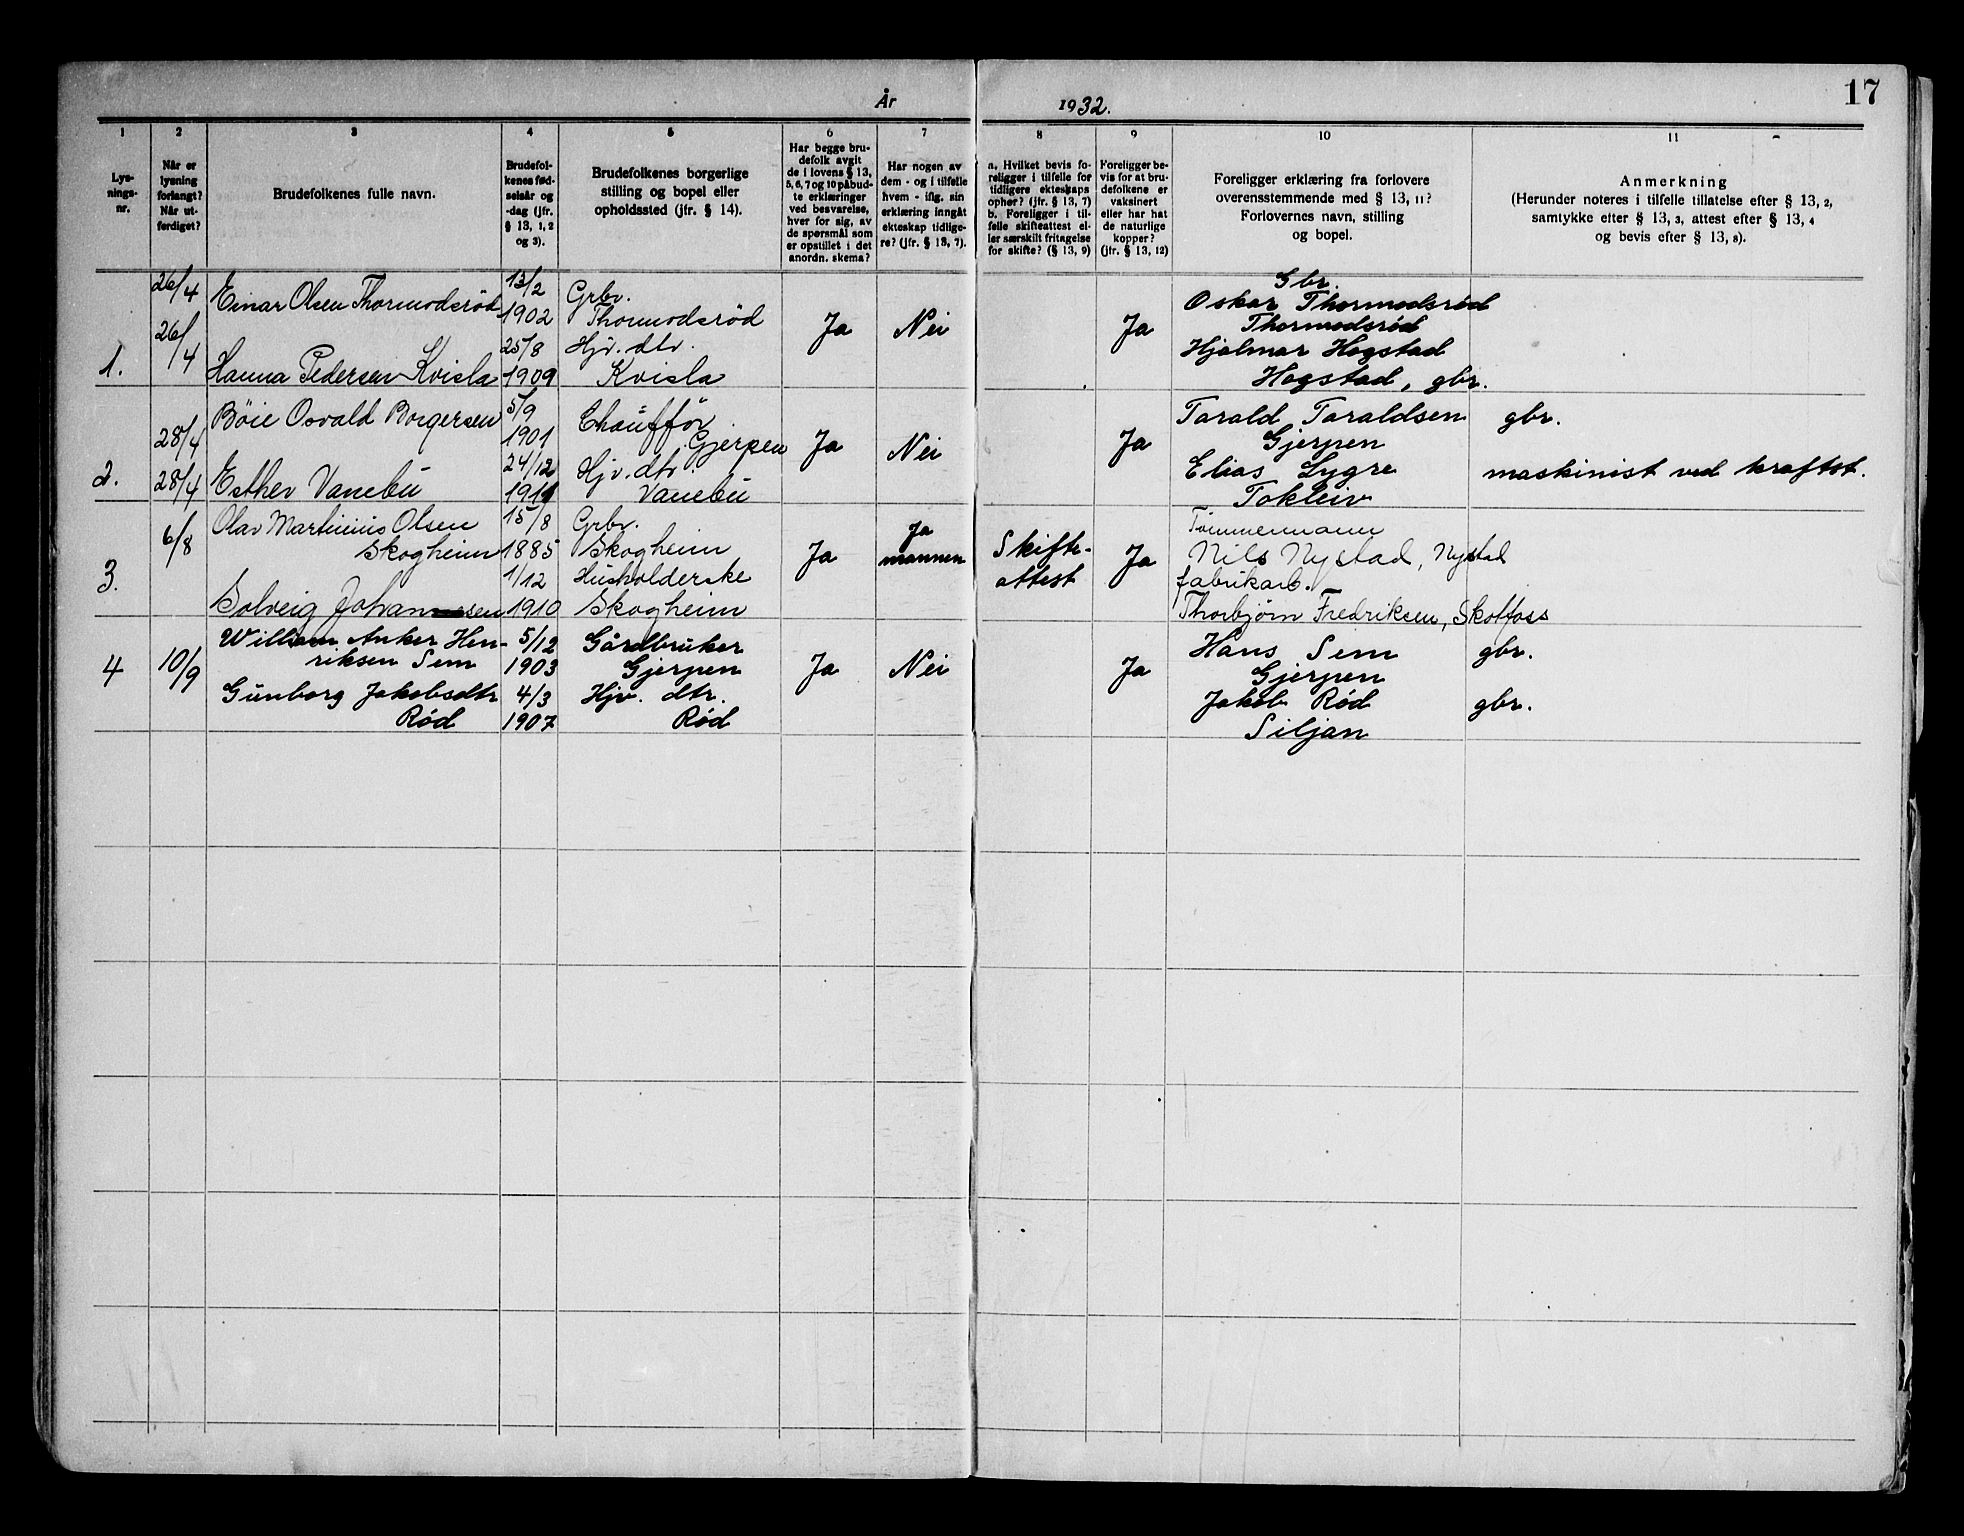 17
År 1932.
1 2 3 4 5 6 7 8 9 10 11
Lys-
nings-
nr.
Når er
lysning
forlangt?
Når ut-
ferdiget?
Brudefolkenes fulle navn.
Brudefol-
kenes fød-
selsår og
-dag (jfr.
§ 13, 1, 2
og 3).
Brudefolkenes borgerlige
stilling og bopel eller
opholdssted (jfr. § 14).
Har begge bru-
defolk avgit
de i lovens § 13,
5, 6, 7 og 10 påbud-
te erklæringer
ved besvarelse,
hver for sig, av
de spørsmål som
er opstillet i det
anordn. skema?
Har nogen av
dem - og i tilfelle
hvem - iflg. sin
erklæring inngått
ekteskap tidlige-
re? (jfr. § 13, 7).
a. Hvilket bevis fo-
religger i tilfelle for
tidligere ekteskaps
ophør? (jfr. § 13, 7)
b. Foreligger i til-
felle skifteattest el-
ler særskilt fritagelse
for skifte? (§ 13, 9)
Foreligger be-
vis for at bru-
defolkene er
vaksinert
eller har hat
de naturlige
kopper?
(jfr. § 13, 12)
Foreligger erklæring fra forlovere
overensstemmende med § 13, 11?
Forlovernes navn, stilling
og bopel.
Anmerkning
(Herunder noteres i tilfelle tillatelse efter § 13, 2,
samtykke efter § 13, 3, attest efter § 13, 4
og bevis efter § 13, 8).
1.
26/4
26/4
Einar Olsen Thormodsrød
Hanna Pedersen Kvisla
13/2
1902
25/8
1909
Grbr.
Thormodsrød
Hjv. dtr.
Kvisla
Ja
Nei
Ja
Gbr.
Oskar Thormodsrød
Thormodsrød
Hjalmar Hogstad
Hogstad, gbr.
2.
28/4
28/4
Bøie Osvald Borgersen
Esther Vanebu
5/9
1901
24/12
1911
Chauffør
Gjerpen
Hjv. dtr.
Vanebu
Ja
Nei
Ja
Tarald Taraldsen gbr.
Gjerpen
Elias Lygre maskinist ved kraftst.
Tokleiv
3.
6/8
Olav Martinius Olsen
Skogheim
Solveig Johannesen
15/8
1885
1/12
1910
Grbr.
Skogheim
Husholderske
Skogheim
Ja
Ja
mannen
Skifte-
attest
Ja
Tømmermann
Nils Nystad, Nystad
fabrikarb.
Thorbjørn Fredriksen, Skotfoss
4
10/9
William Anker Hen-
riksen Sem
Gunborg Jakobsdtr
Rød
5/12
1903
4/3
1907
Gårdbruker
Gjerpen
Hjv. dtr.
Rød
Ja
Nei
Ja
Hans Sem gbr.
Gjerpen
Jakob Rød gbr.
Siljan